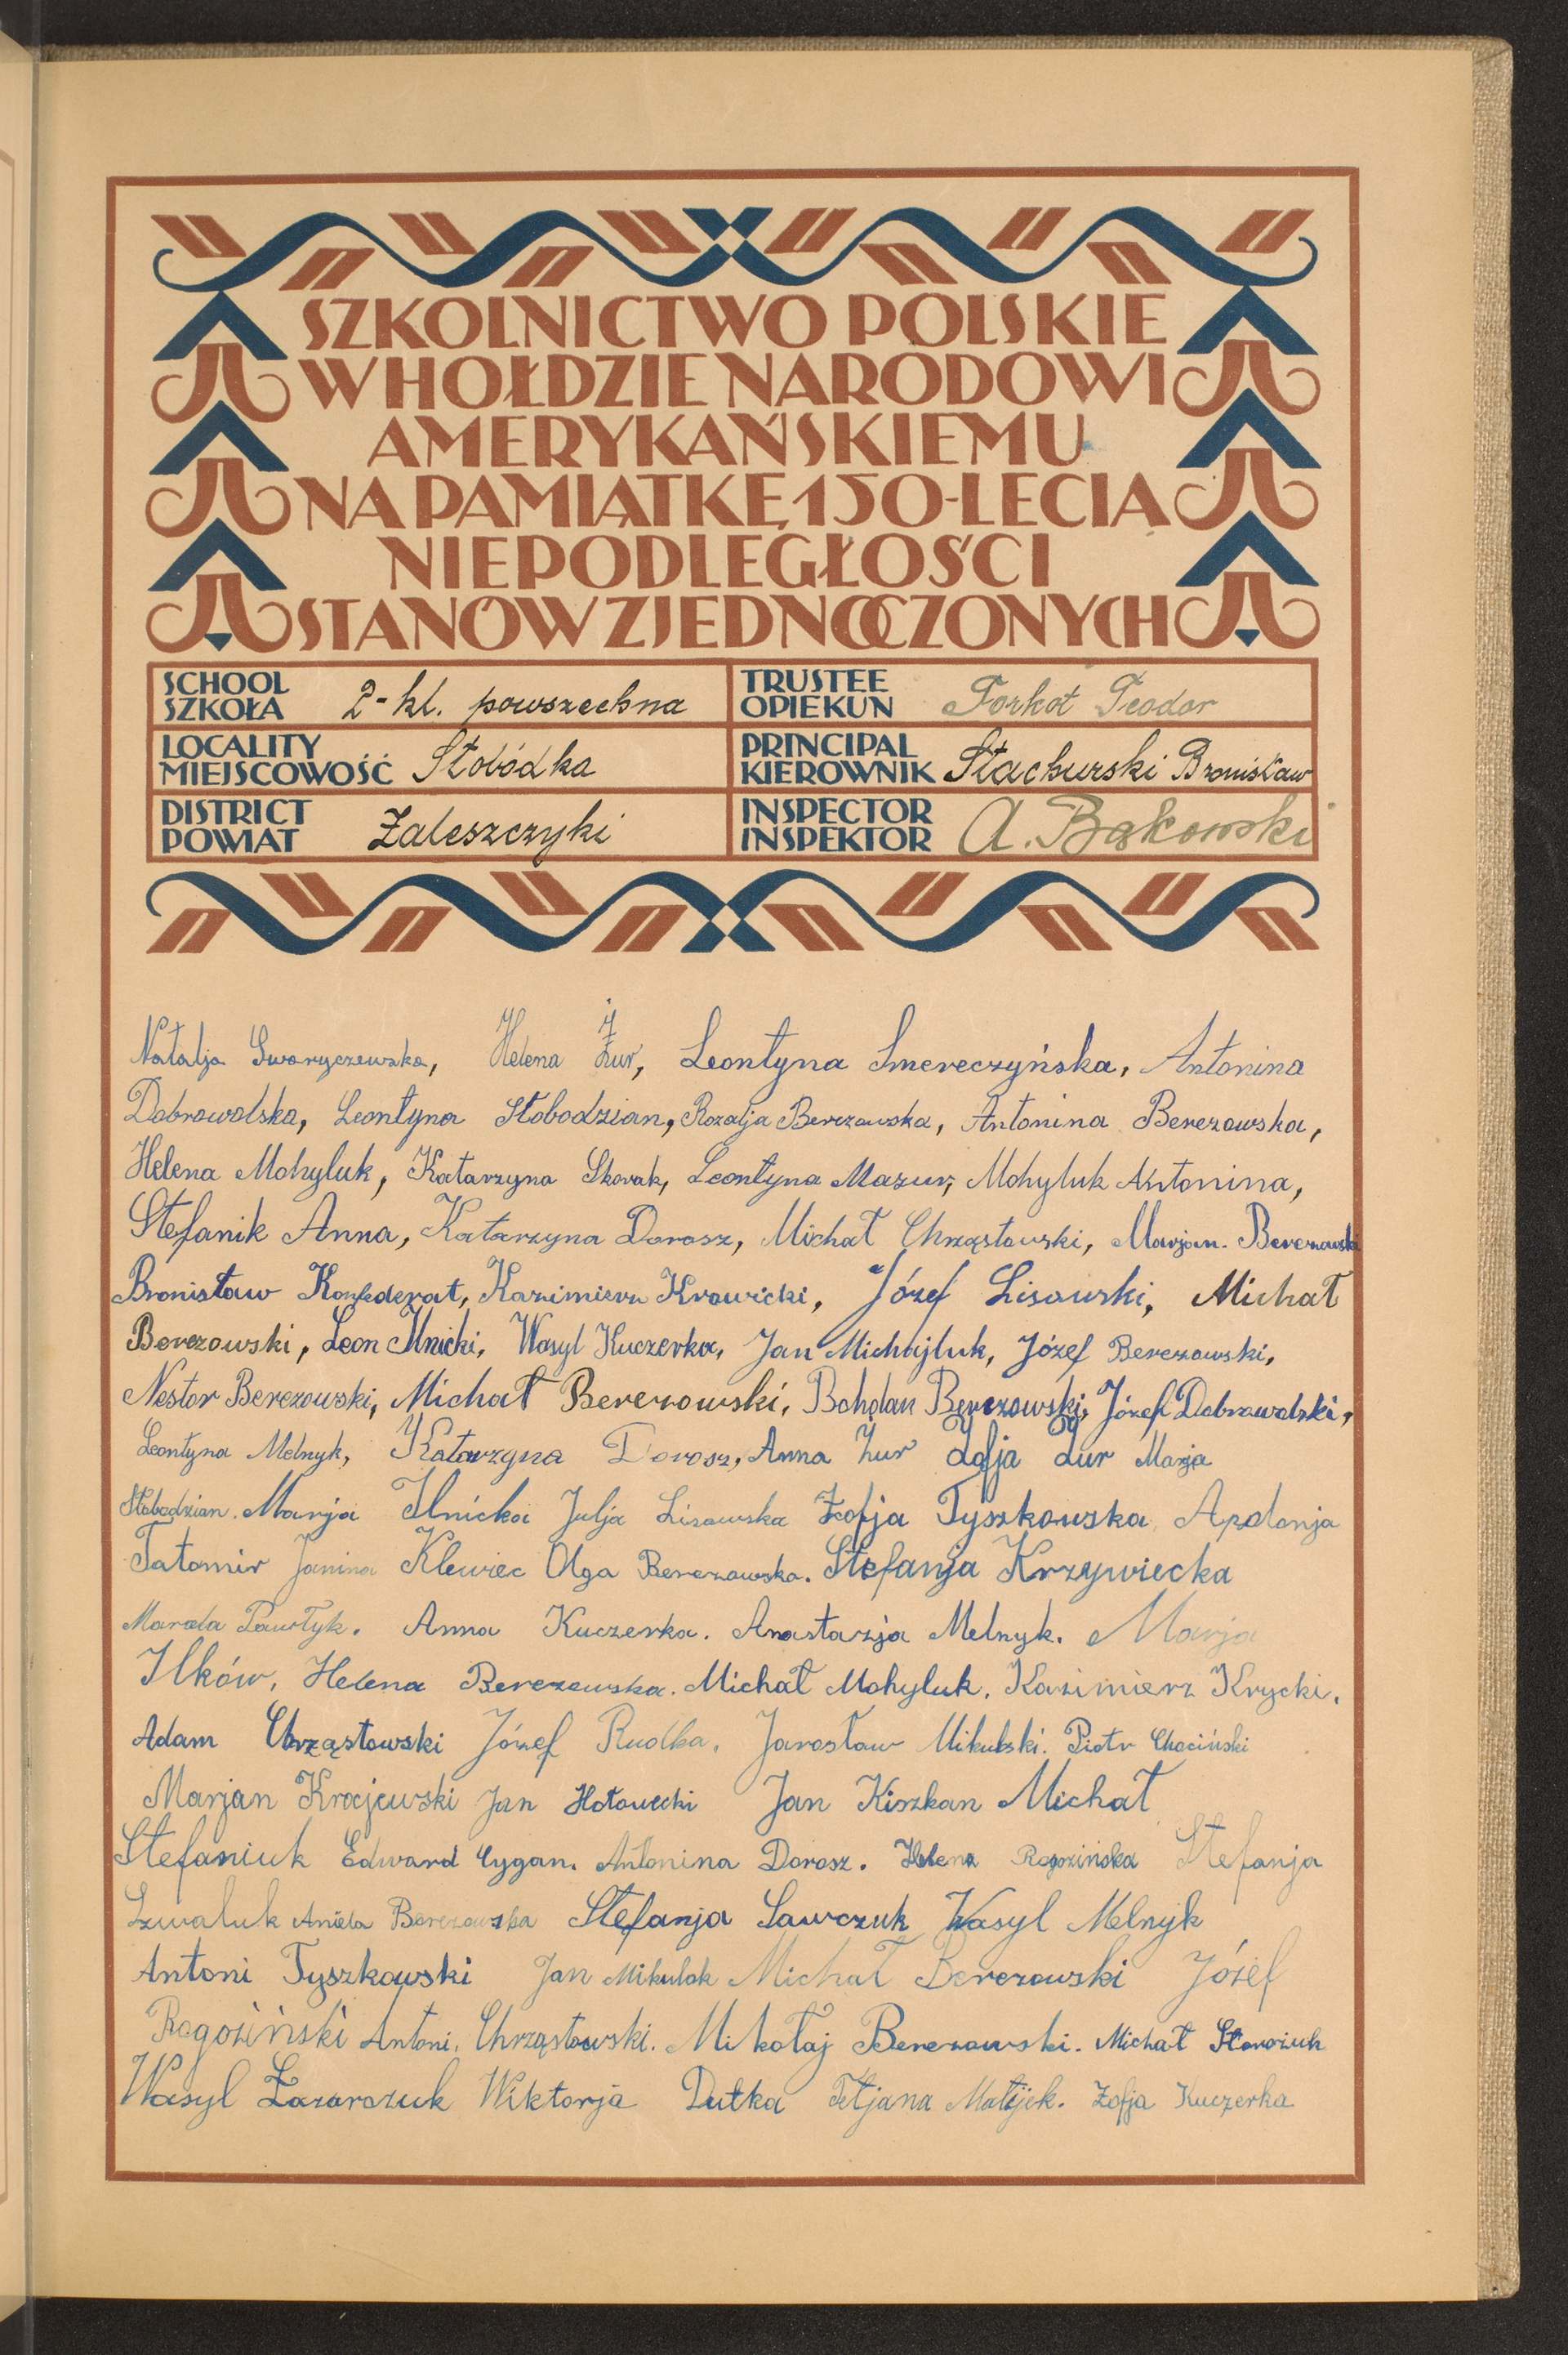 SZKOLNICTWO POLSKIE
W HOŁDZIE NARODOWI
AMERYKAŃSKIEMU
NA PAMIĄTKĘ 150-LECIA
NIEPODLEGŁOŚCI
STANÓW ZJEDNOCZONYCH
SCHOOL
SZKOŁA 2-kl. powszechna
LOCALITY
MIEJSCOWOŚĆ Słobódka
DISTRICT
POWIAT Zaleszczyki
TRUSTEE
OPIEKUN Forkot Teodor
PRINCIPAL
KIEROWNIK Stachurski Bronisław
INSPECTOR
INSPEKTOR A. Bąkowski
Natalja Swaryczewska, Helena Żur, Leontyna Smereczyńska, Antonina
Dobrowolska, Leontyna Słobodzian, Rozalja Berezowska, Antonina Berezowska,
Helena Mohyluk, Katarzyna Skorak, Leontyna Mazur, Mohyluk Antonina,
Stefanik Anna, Katarzyna Dorosz, Michał Chrząstowski, Marjan Berezowski
Bronisław Konfederat, Kazimierz Krowicki, Józef Lisowski, Michał
Berezowski, Leon Ilnicki, Wasyl Kuczerka, Jan Michajluk, Józef Berezowski,
Nestor Berezowski, Michał Berezowski, Bohdan Berezowski, Józef Dobrowolski,
Leontyna Melnyk, Katarzyna Dorosz, Anna Żur Zofja Żur Marja
Słobodzian. Marja Ilnicka Julja Lisowska Zofja Tyszkowska Apolonja
Tatomir Janina Klewiec Olga Berezowska. Stefanja Krzywiecka
Pawłyk. Anna Kuczerka. Anastazja Melnyk. Marja
Ilków, Helena Berezowska. Michał Mohyluk, Kazimierz Krycki,
Adam Chrząstowski Józef Rudka, Jarosław Mikulski. Piotr Chociński
Marjan Krajewski Jan Hołowecki Jan Kiszkan Michał
Stefaniuk Edward Cygan. Antonina Dorosz. Helena Rogozińska Stefanja
Szwaluk Aniela Berezowska Stefanja Sawczuk Wasyl Melnyk
Antoni Tyszkowski Jan Mikulak Michał Berezowski Józef
Rogoziński Antoni. Chrząstowski. Mikołaj Berezowski. Michał
Wasyl Łazarczuk Wiktorja Dutka Tetjana Matijek. Zofja Kuczerka